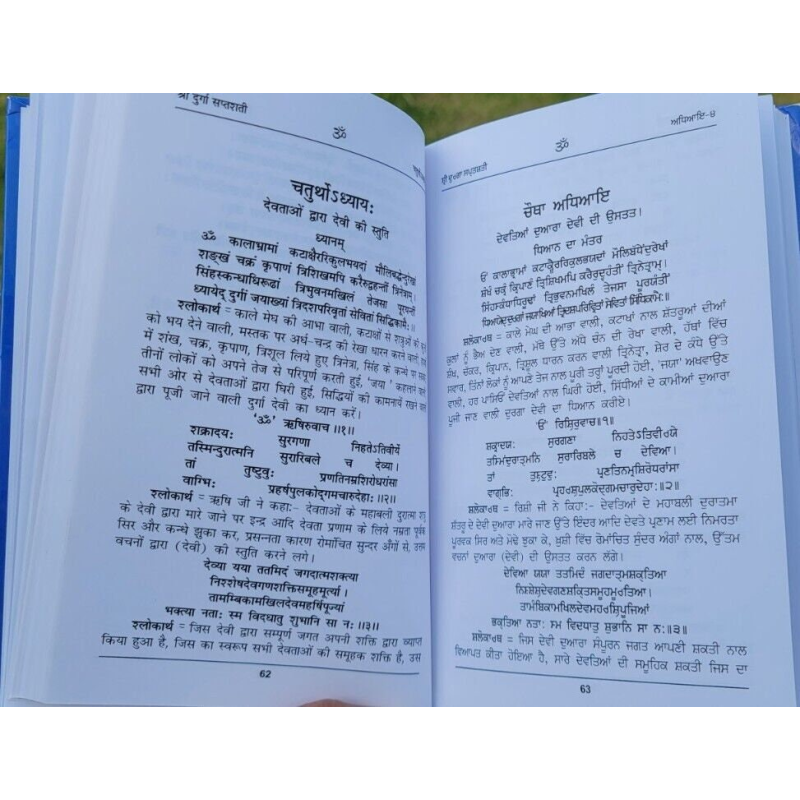 श्री दुर्गा सप्तशती
ॐ
चतुर्थोऽध्यायः
देवताओं द्वारा देवी की स्तुति
ध्यानम्
ॐ कालाभ्रामां कटाक्षैररिकुलभयदां मौलिबद्धेन्दुरेखां
शङ्खं चक्रं कृपाणं त्रिशिखमपि करैरुद्वहन्तीं त्रिनेत्राम्।
सिंहस्कन्धाधिरूढां त्रिभुवनमखिलं तेजसा पूरयन्तीं
ध्यायेद् दुर्गां जयाख्यां त्रिदशपरिवृतां सेवितां सिद्धिकामैः॥
श्लोकार्थ = काले मेघ की आभा वाली, कटाक्षों से शत्रुओं को
को भय देने वाली, मस्तक पर अर्ध-चन्द्र की रेखा धारन करने वाली, हाथों
में शंख, चक्र, कृपाण, त्रिशूल लिये हुए त्रिनेत्रा, सिंह के कन्धे पर सवार
तीनों लोकों को अपने तेज से परिपूर्ण करती हुई, 'जया' कहलाने वाली
सभी ओर से देवताओं द्वारा घिरी हुई, सिद्धियों की कामनायें रखने वालों
द्वारा पूजी जाने वाली दुर्गा देवी का ध्यान करें।
'ॐ' ऋषिरुवाच॥१॥
शक्रादयः सुरगणा निहतेऽतिवीर्ये
तस्मिन्दुरात्मनि सुरारिबले च देव्या।
तां तुष्टुवुः प्रणतिनम्रशिरोधरांसा
वाग्भिः प्रहर्षपुलकोद्गमचारुदेहाः॥२॥
श्लोकार्थ = ऋषि जी ने कहा:- देवताओं के महाबली दुरात्मा शत्रु
के देवी द्वारा मारे जाने पर इन्द्र आदि देवता प्रणाम के लिये नम्रता पूर्वक
सिर और कन्धे झुका कर, प्रसन्नता कारण रोमाञ्चित सुन्दर अँगों से, उत्तम
वचनों द्वारा (देवी) की स्तुति करने लगे।
देव्या यया ततमिदं जगदात्मशक्त्या
निश्शेषदेवगणशक्तिसमूहमूर्त्या।
तामम्बिकामखिलदेवमहर्षिपूज्यां
भक्त्या नताः स्म विदधातु शुभानि सा नः॥३॥
श्लोकार्थ = जिस देवी द्वारा सम्पूर्ण जगत अपनी शक्ति द्वारा व्याप्त
किया हुआ है, जिस का स्वरूप सभी देवताओं की समूहक शक्ति है, उस
62
ਅਧਿਆਇ-੪
ॐ
ਸ੍ਰੀ ਦੁਰਗਾ ਸਪ੍ਤਸ਼ਤੀ
ਚੌਥਾ ਅਧਿਆਇ
ਦੇਵਤਿਆਂ ਦੁਆਰਾ ਦੇਵੀ ਦੀ ਉਸਤਤ।
ਧਿਆਨ ਦਾ ਮੰਤਰ
ਓਂ ਕਾਲਾਭ੍ਰਾਮਾਂ ਕਟਾਕ੍ਸ਼ੈਰਰਿਕੁਲਭਯਦਾਂ ਮੌਲਿਬੱਧੇਂਦੁਰੇਖਾਂ
ਸ਼ੰਖੰ ਚਕ੍ਰੰ ਕ੍ਰਿਪਾਣੰ ਤ੍ਰਿਸ਼ਿਖਮਪਿ ਕਰੈਰੁਦ੍ਵਹੰਤੀਂ ਤ੍ਰਿਨੇਤ੍ਰਾਮ੍।
ਸਿੰਹਸਕੰਧਾਧਿਰੂਢਾਂ ਤ੍ਰਿਭੁਵਨਮਖਿਲੰ ਤੇਜਸਾ ਪੂਰਯੰਤੀਂ
ਧਿਆਯੇਦ੍ਦੁਰਗਾਂ ਜਯਾਖਿਆਂ ਤ੍ਰਿਦਸ਼ਪਰਿਵ੍ਰਿਤਾਂ ਸੇਵਿਤਾਂ ਸਿੱਧਿਕਾਮੈਃ॥
ਸ਼ਲੋਕਾਰਥ = ਕਾਲੇ ਮੇਘ ਦੀ ਆਭਾ ਵਾਲੀ, ਕਟਾਖਾਂ ਨਾਲ ਸ਼ੱਤਰੂਆਂ ਦੀਆਂ
ਕੁਲਾਂ ਨੂੰ ਭੈਅ ਦੇਣ ਵਾਲੀ, ਮੱਥੇ ਉੱਤੇ ਅੱਧੇ ਚੰਨ ਦੀ ਰੇਖਾ ਵਾਲੀ, ਹੱਥਾਂ ਵਿੱਚ
ਸੰਖ, ਚੱਕਰ, ਕ੍ਰਿਪਾਨ, ਤ੍ਰਿਸ਼ੂਲ ਧਾਰਨ ਕਰਨ ਵਾਲੀ ਤ੍ਰਿਨੇਤ੍ਰਾ, ਸ਼ੇਰ ਦੇ ਕੰਧੇ ਉੱਤੇ
ਸਵਾਰ, ਤਿੰਨਾਂ ਲੋਕਾਂ ਨੂੰ ਆਪਣੇ ਤੇਜ ਨਾਲ ਪੂਰੀ ਤਰ੍ਹਾਂ ਪੂਰਦੀ ਹੋਈ, 'ਜਯਾ' ਅਖਵਾਉਣ
ਵਾਲੀ, ਹਰ ਪਾਸਿਓਂ ਦੇਵਤਿਆਂ ਨਾਲ ਘਿਰੀ ਹੋਈ, ਸਿੱਧੀਆਂ ਦੇ ਕਾਮੀਆਂ ਦੁਆਰਾ
ਪੂਜੀ ਜਾਣ ਵਾਲੀ ਦੁਰਗਾ ਦੇਵੀ ਦਾ ਧਿਆਨ ਕਰੀਏ।
'ਓਂ' ਰਿਸ਼ਿਰੁਵਾਚ॥੧॥
ਸ਼ਕ੍ਰਾਦਯਃ ਸੁਰਗਣਾ ਨਿਹਤੇऽਤਿਵੀਰਯੇ
ਤਸਮਿੰਦੁਰਾਤ੍ਮਨਿ ਸੁਰਾਰਿਬਲੇ ਚ ਦੇਵਿਆ।
ਤਾਂ ਤੁਸ਼ਟੁਵੁਃ ਪ੍ਰਣਤਿਨਮ੍ਰਸ਼ਿਰੋਧਰਾਂਸਾ
ਵਾਗ੍ਭਿਃ ਪ੍ਰਹਰਸ਼ਪੁਲਕੋਦ੍ਗਮਚਾਰੁਦੇਹਾਃ॥੨॥
ਸ਼ਲੋਕਾਰਥ = ਰਿਸ਼ੀ ਜੀ ਨੇ ਕਿਹਾ:- ਦੇਵਤਿਆਂ ਦੇ ਮਹਾਬਲੀ ਦੁਰਾਤਮਾ
ਸ਼ੱਤਰੂ ਦੇ ਦੇਵੀ ਦੁਆਰਾ ਮਾਰੇ ਜਾਣ ਉੱਤੇ ਇੰਦਰ ਆਦਿ ਦੇਵਤੇ ਪ੍ਰਣਾਮ ਲਈ ਨਿਮਰਤਾ
ਪੂਰਵਕ ਸਿਰ ਅਤੇ ਮੋਢੇ ਝੁਕਾ ਕੇ, ਖੁਸ਼ੀ ਵਿੱਚ ਰੋਮਾਂਚਿਤ ਸੁੰਦਰ ਅੰਗਾਂ ਨਾਲ, ਉੱਤਮ
ਵਚਨਾਂ ਦੁਆਰਾ (ਦੇਵੀ) ਦੀ ਉਸਤਤ ਕਰਨ ਲੱਗੇ।
ਦੇਵਿਆ ਯਯਾ ਤਤਮਿਦੰ ਜਗਦਾਤ੍ਮਸ਼ਕਤਿਆ
ਨਿਸ਼੍ਸ਼ੇਸ਼ਦੇਵਗਣਸ਼ਕ੍ਤਿਸਮੂਹਮੂਰਤਿਆ।
ਤਾਮੰਬਿਕਾਮਖਿਲਦੇਵਮਹਰਸ਼ਿਪੂਜਿਆਂ
ਭਕ੍ਤਿਆ ਨਤਾਃ ਸਮ ਵਿਦਧਾਤੁ ਸ਼ੁਭਾਨਿ ਸਾ ਨਃ॥੩॥
ਸ਼ਲੋਕਾਰਥ = ਜਿਸ ਦੇਵੀ ਦੁਆਰਾ ਸੰਪੂਰਨ ਜਗਤ ਆਪਣੀ ਸ਼ਕਤੀ ਨਾਲ
ਵਿਆਪਤ ਕੀਤਾ ਹੋਇਆ ਹੈ, ਸਾਰੇ ਦੇਵਤਿਆਂ ਦੀ ਸਮੂਹਿਕ ਸ਼ਕਤੀ ਜਿਸ ਦਾ
63